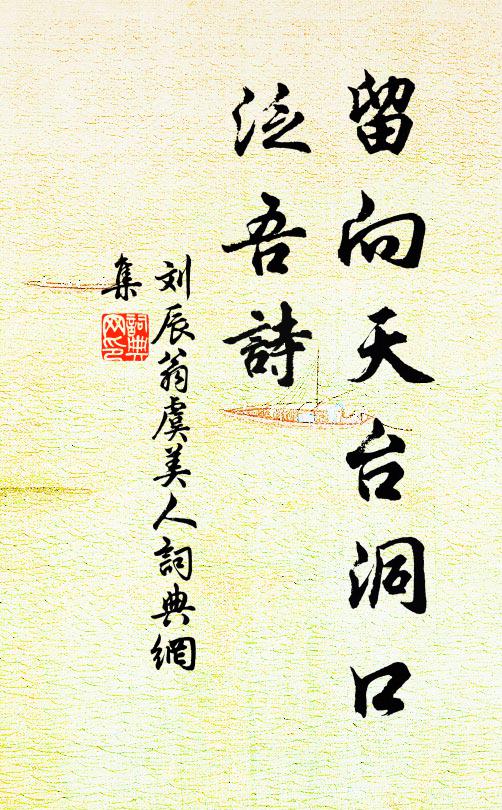 留向天台洞口
泛吾詩
刘辰翁虞美人詞典網
集
詞典
网印